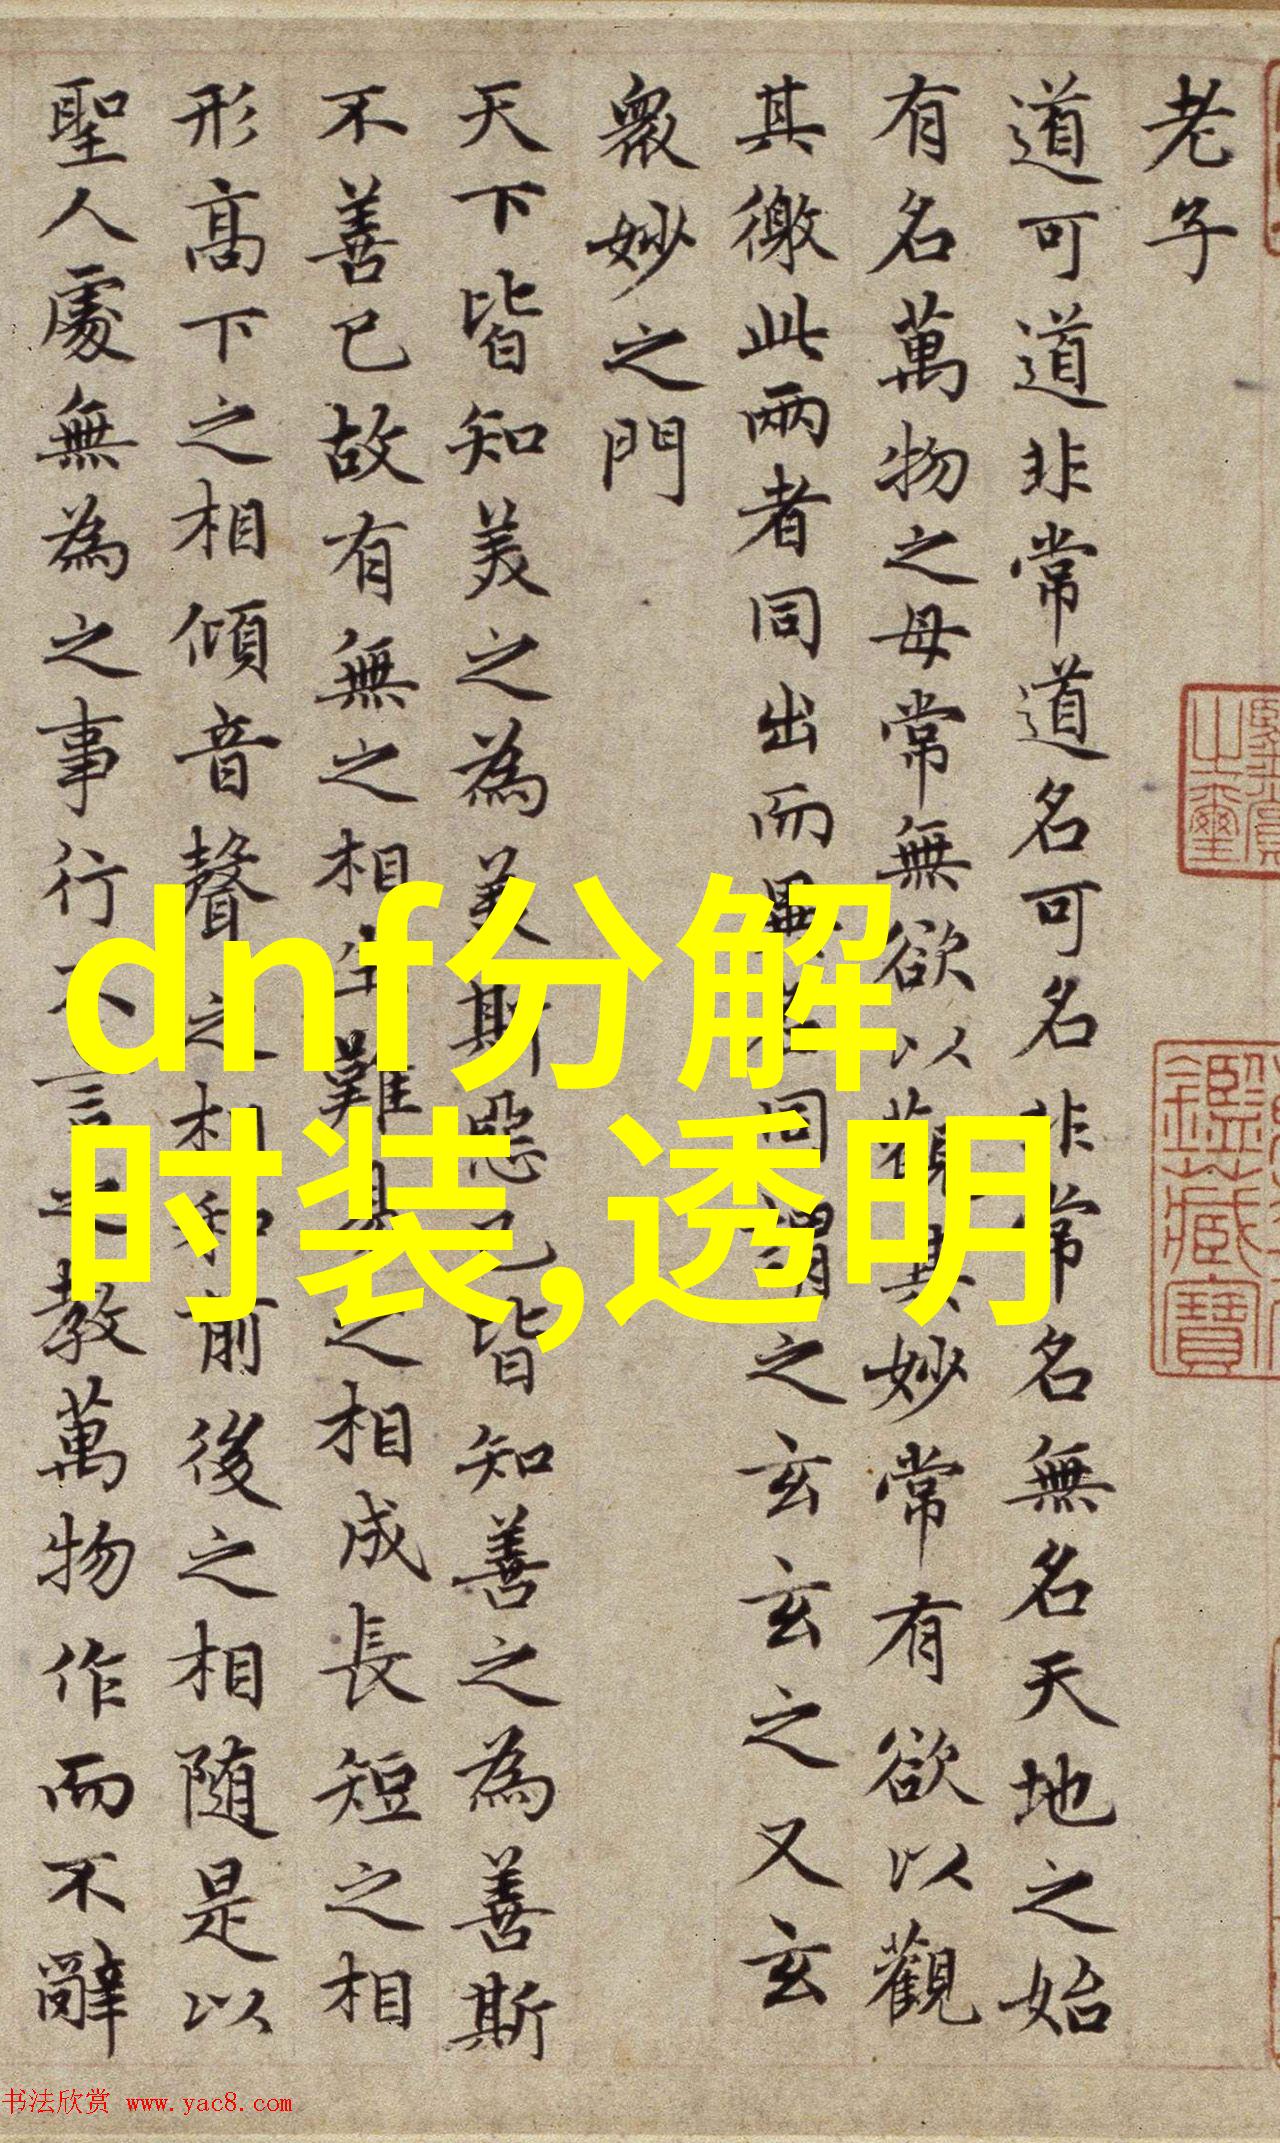 老子
道可道非常道名可名非常名無名天地之始
有名萬物之母常無欲以觀其妙常有欲以觀
其徼此兩者同出而異名同謂之玄玄之又玄
衆妙之門
天下皆知美之為美斯惡已皆知善之為善斯
不善已故有無之相生難易之相成長短之相
形高下之相傾音聲之相和前後之相随是以
聖人處無為之事行不言之教萬物作而不辭
dnf分解
时装,透明
书法欣赏 www.yac8.com